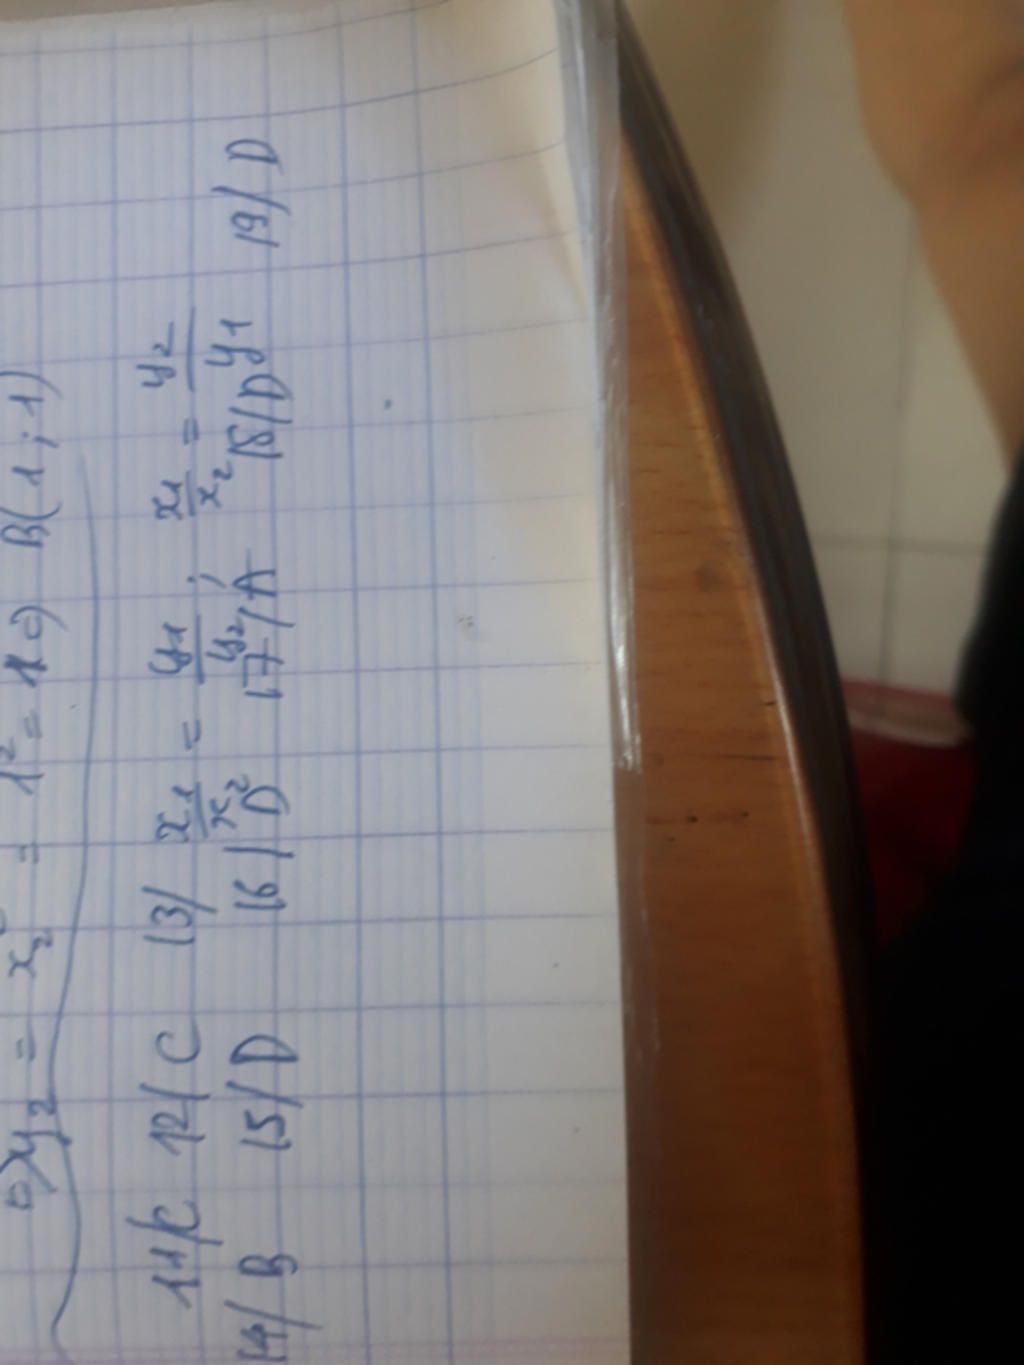 ⇒ y₂ = x₂² = 1² = 1 ⇒ B(1;1)
11/C 12/C 13/ x₁/x₂ = y₁/y₂; x₁/x₂ = y₂/y₁
14/B 15/D 16/D 17/A 18/D 19/D